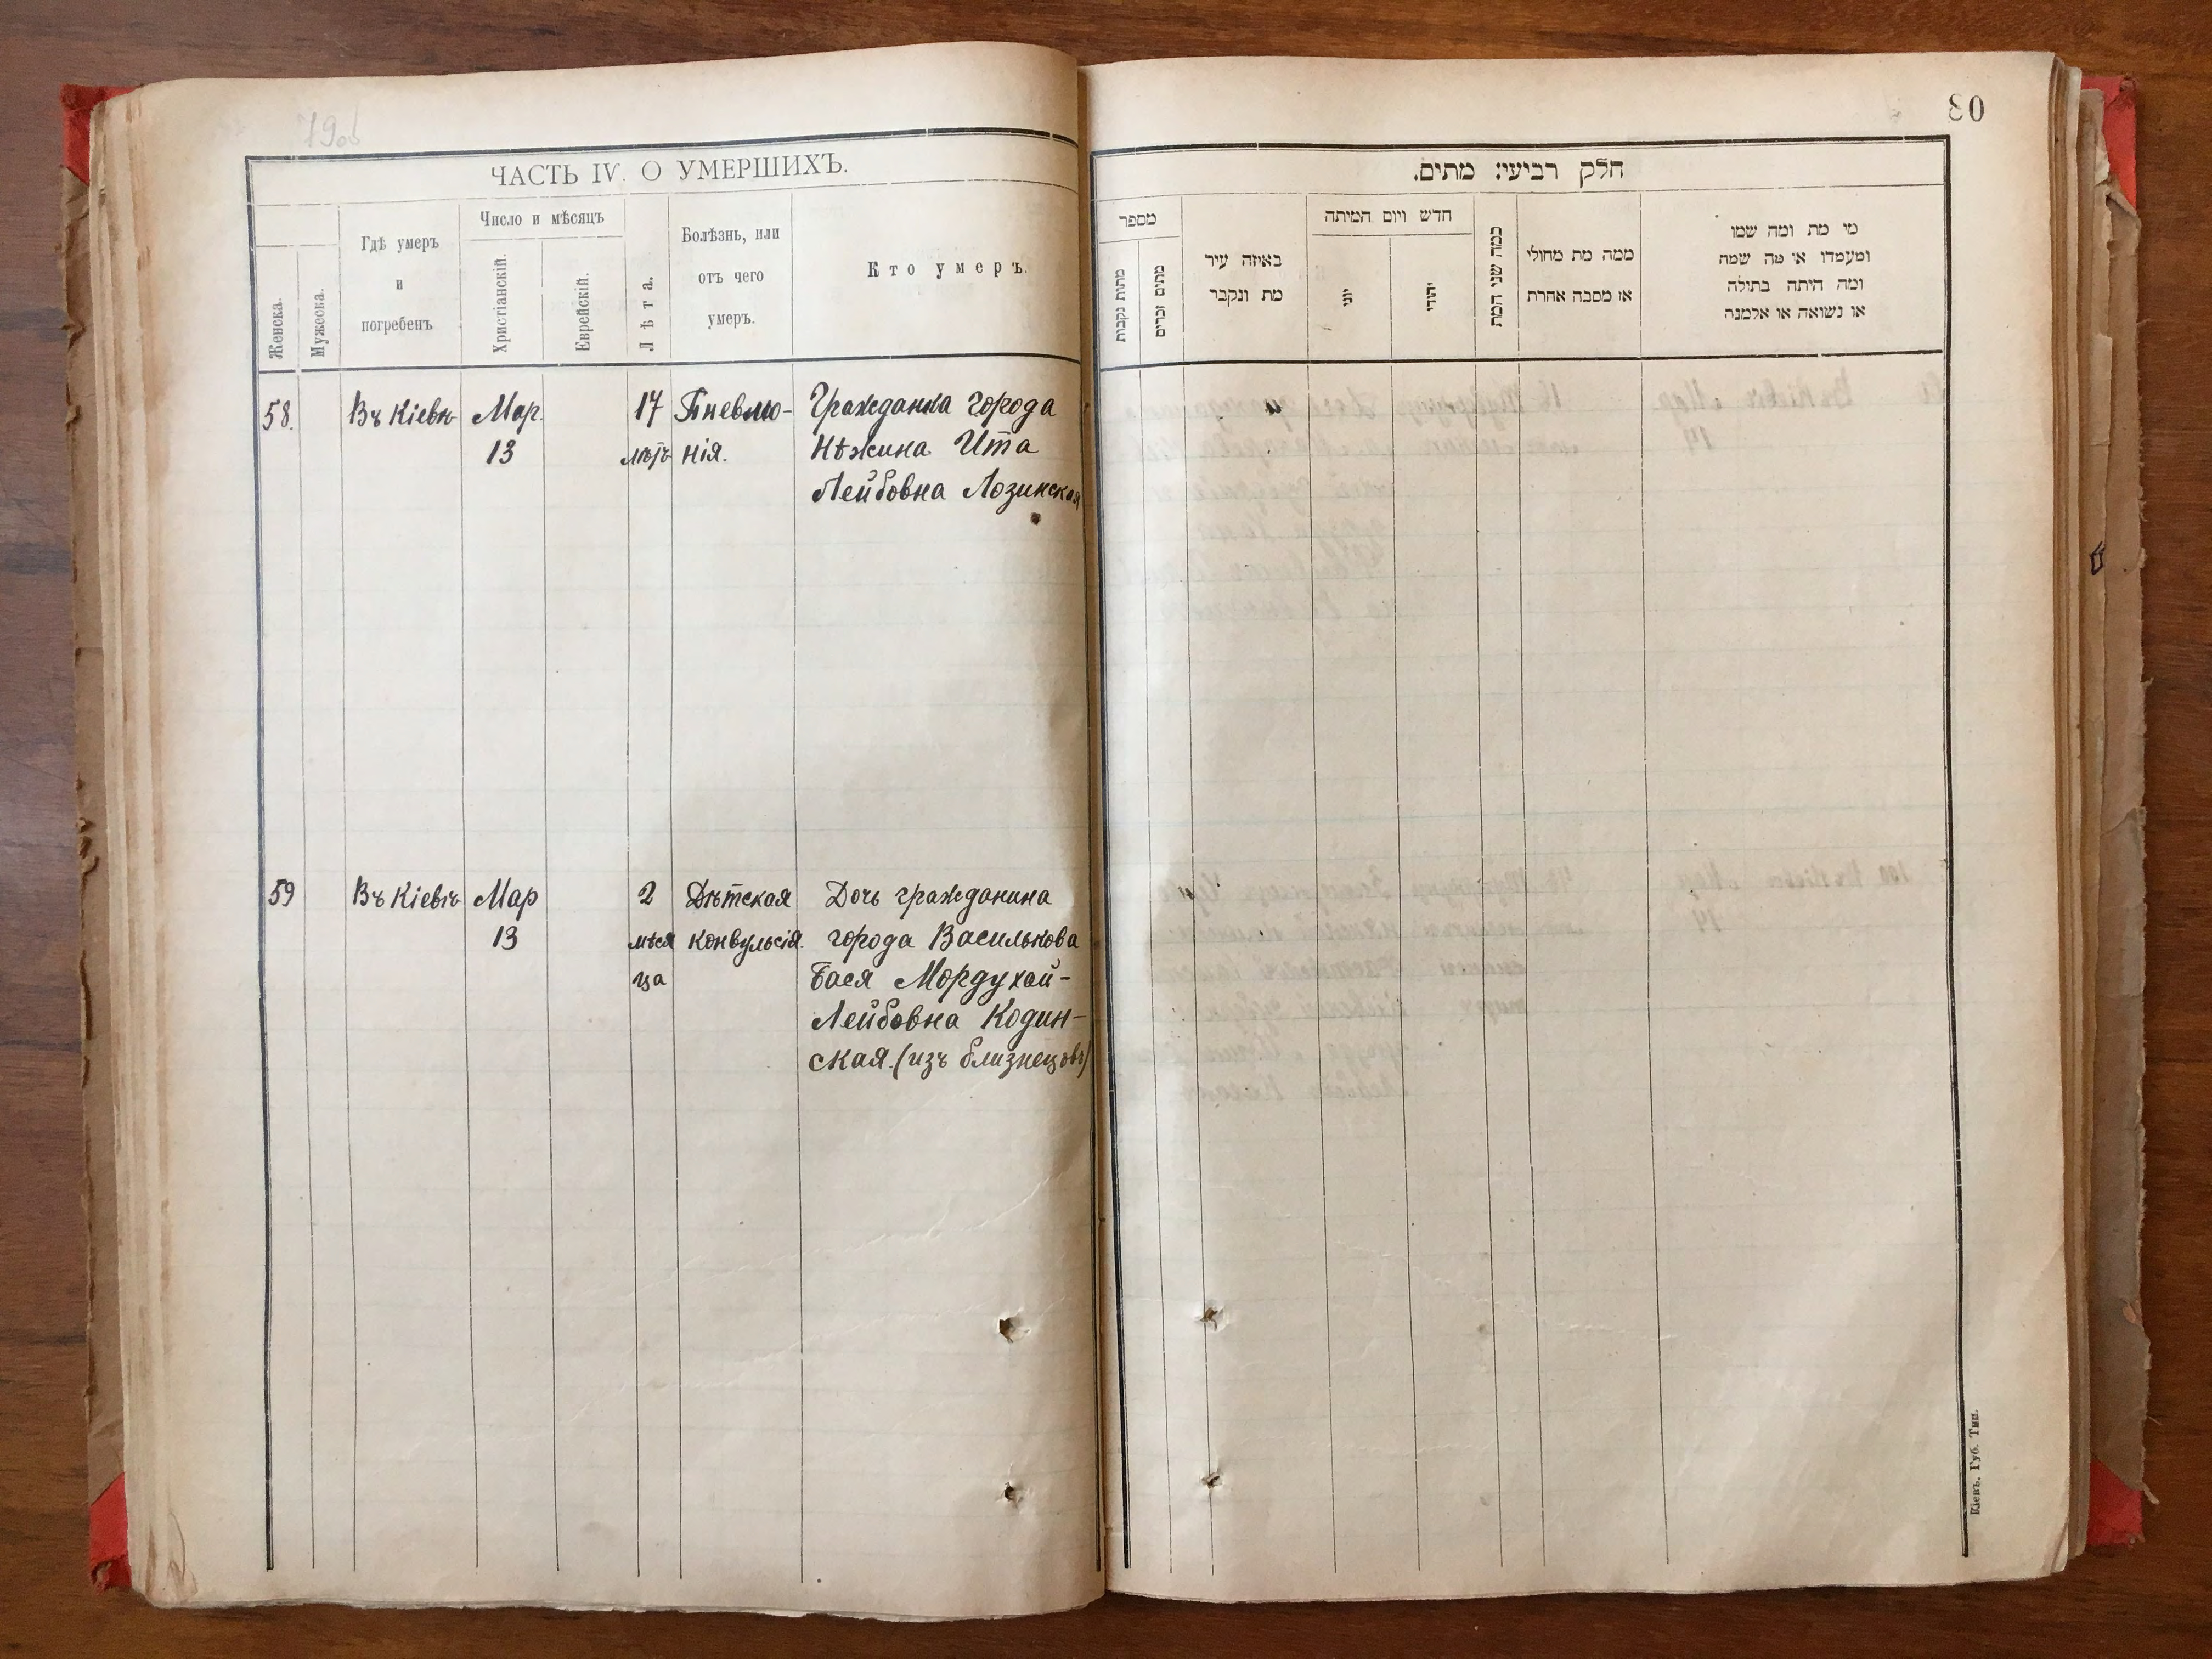 79об
ЧАСТЬ IV. О УМЕРШИХЪ.
Женска.
Мужеска.
Гдѣ умеръ
и
погребенъ
Число и мѣсяцъ
Христіанскій.
Еврейскій.
Лѣта.
Болѣзнь, или
отъ чего
умеръ.
Кто умеръ.
58. Въ Кіевѣ Мар. 17 Пневмо- Гражданка города
13 лѣтъ нія. Нѣжина Ита
Лейбовна Лозинская
59 Въ Кіевѣ Мар 2 Дѣтская Дочь гражданина
13 мѣся конвульсія. города Василькова
ца Бася Мордухай-
Лейбовна Кодин-
ская. (изъ близнецовъ)
80
חלק רביעי: מתים.
מספר
מתות נקבות
מתים זכרים
באיזה עיר
מת ונקבר
חדש ויום המיתה
יוני
יהודי
כמה שני המת
ממה מת מחולי
או מסבה אחרת
מי מת ומה שמו
ומעמדו או מה שמה
ומה היתה בתולה
או נשואה או אלמנה
Кіевъ. Губ. Тип.